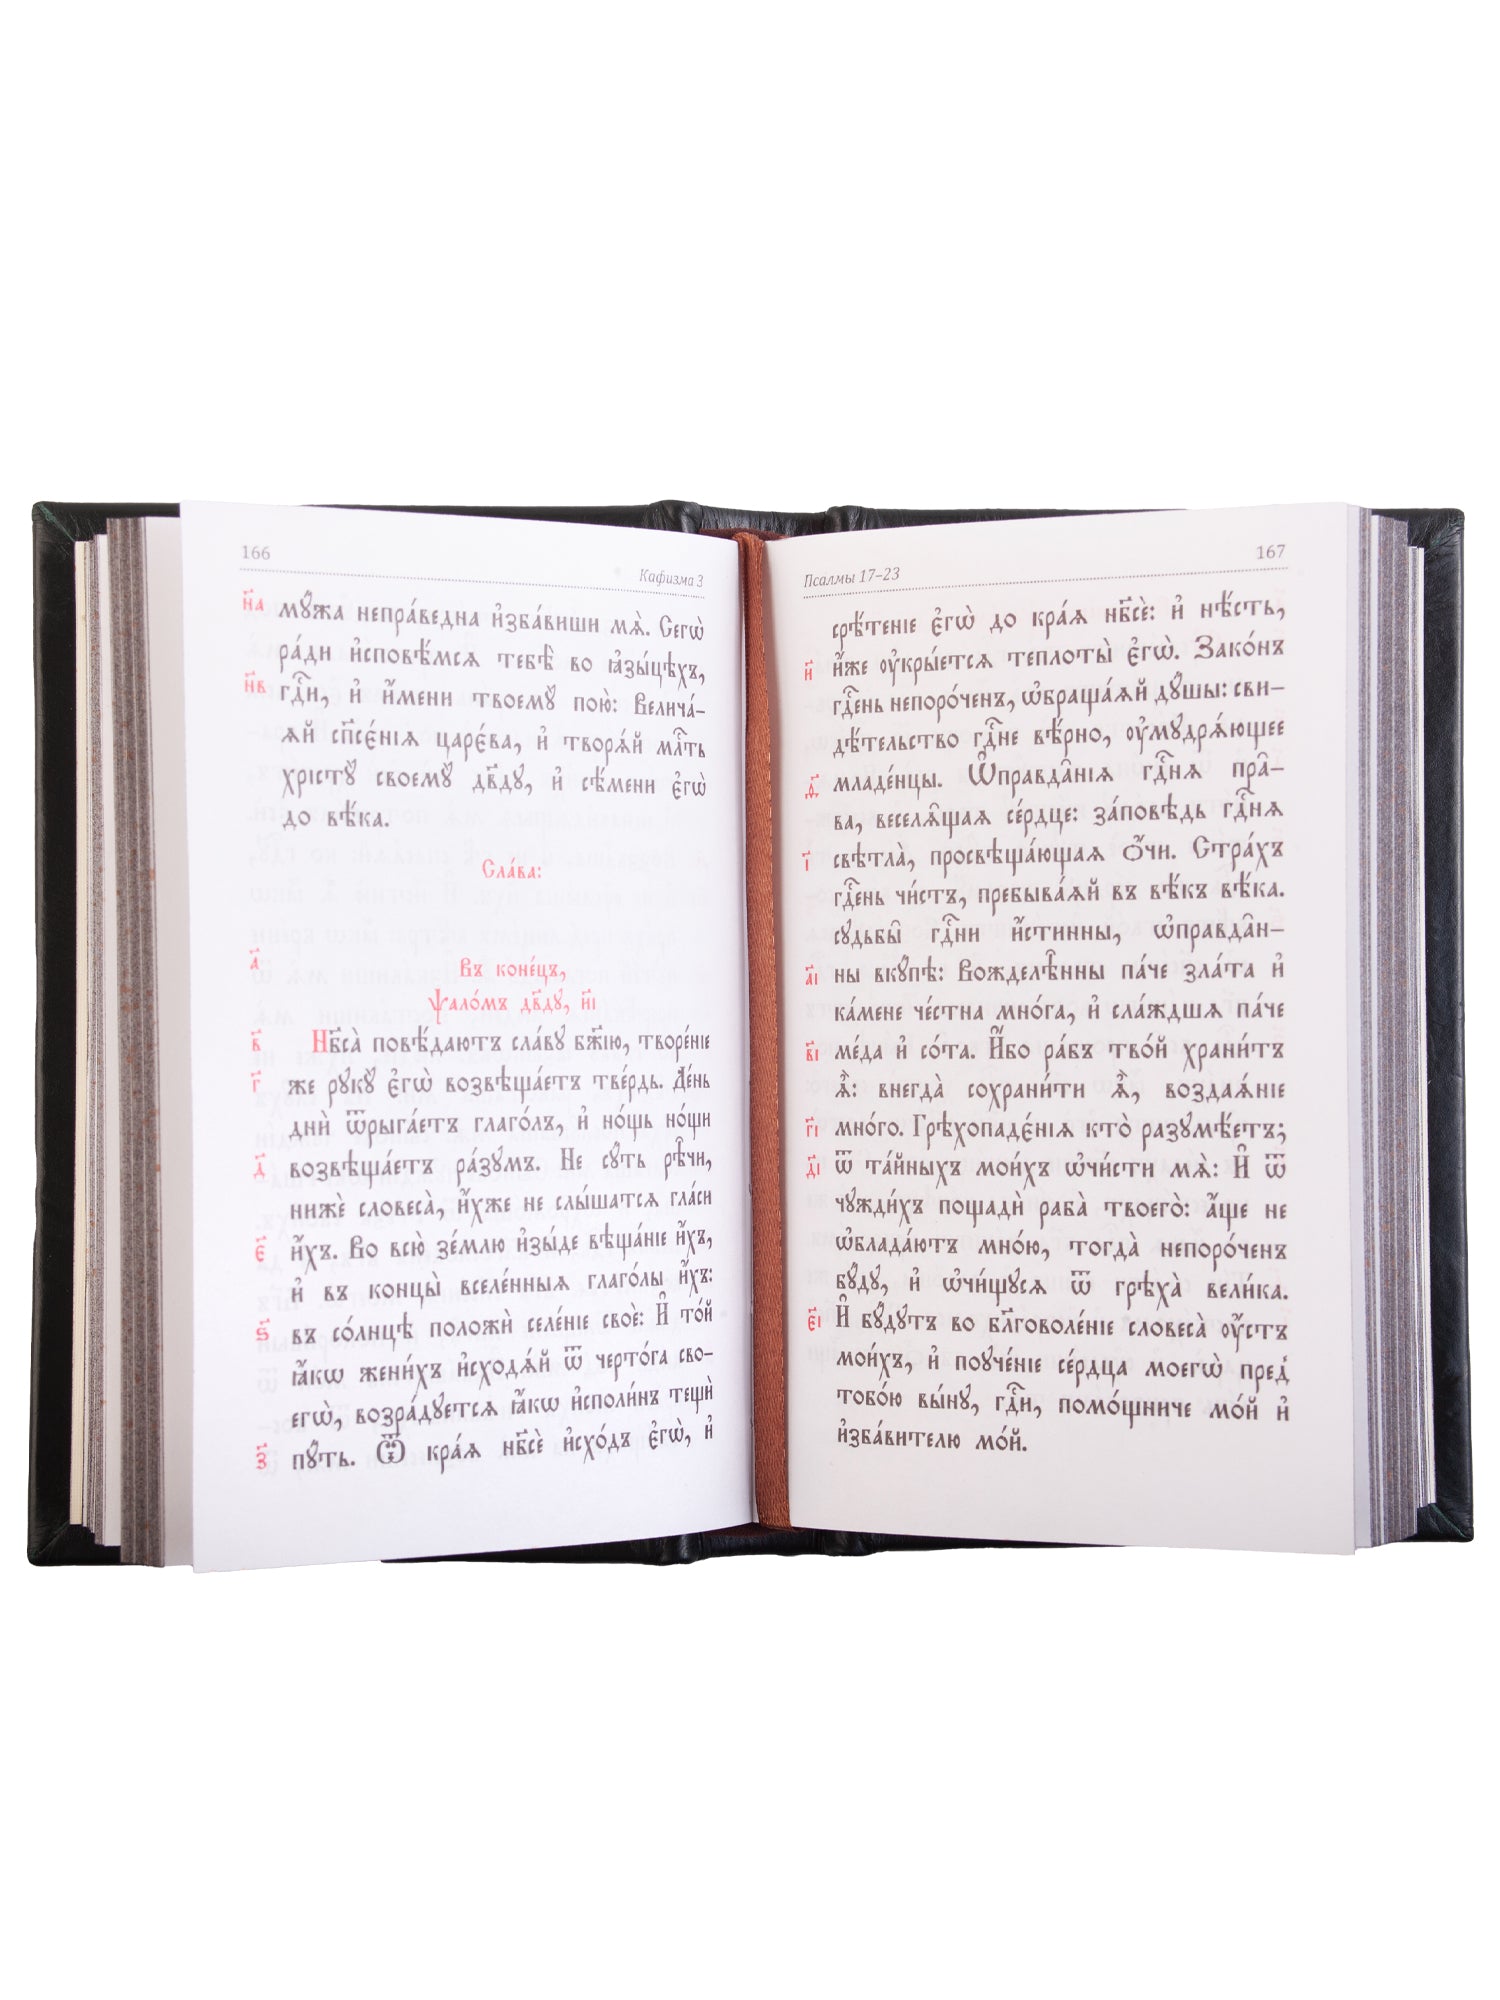 166
Кафизма 3
н҃а мꙋ́жа непра́ведна и҆зба́виши мѧ̀. Сегѡ̀
ра́ди и҆сповѣ́мсѧ тебѣ̀ во ꙗ҆зы́цѣхъ,
н҃в гдⷭ҇и, и҆ и҆́мени твоемꙋ̀ пою̀: Велича́-
ѧй сп҃се́нїѧ царе́ва, и҆ творѧ́й млⷭ҇ть
хрїстꙋ̀ своемꙋ̀ дв҃дꙋ, и҆ сѣ́мени є҆гѡ̀
до вѣ́ка.
Сла́ва:
а҃ Въ коне́цъ,
ѱало́мъ дв҃дꙋ, и҃і
в҃ Нб҃са̀ повѣ́даютъ сла́вꙋ бж҃їю, творе́нїе
г҃ же рꙋкꙋ̀ є҆гѡ̀ возвѣща́етъ тве́рдь. Де́нь
днѝ ѿрыга́етъ глаго́лъ, и҆ но́щь но́щи
д҃ возвѣща́етъ ра́зꙋмъ. Не сꙋ́ть рѣ̑чи,
нижѐ словеса̀, и҆́хже не слы́шатсѧ гла́си
є҃ и҆́хъ. Во всю̀ зе́млю и҆зы́де вѣща́нїе и҆́хъ,
и҆ въ концы̀ вселе́нныѧ глаго́лы и҆́хъ:
ѕ҃ въ со́лнцѣ положѝ селе́нїе своѐ: И҆ то́й
ꙗ҆́кѡ жени́хъ и҆сходѧ́й ѿ черто́га сво-
егѡ̀, возра́дꙋетсѧ ꙗ҆́кѡ и҆споли́нъ тещѝ
з҃ пꙋ́ть. Ѿ кра́ѧ нб҃сѐ и҆схо́дъ є҆гѡ̀, и҆
167
Псалмы 17–23
срѣ́тенїе є҆гѡ̀ до кра́ѧ нб҃сѐ: и҆ нѣ́сть,
и҃ и҆́же ᲂу҆кры́етсѧ теплоты̀ є҆гѡ̀. Зако́нъ
гдⷭ҇ень непоро́ченъ, ѡ҆браща́ѧй дꙋ́шы: сви-
дѣ́тельство гдⷭ҇не вѣ́рно, ᲂу҆мꙋдрѧ́ющее
ѳ҃ младе́нцы. Ѡ҆правда̑нїѧ гдⷭ҇нѧ пра̑-
ва, веселѧ̑щаѧ се́рдце: за́повѣдь гдⷭ҇нѧ
і҃ свѣтла̀, просвѣща́ющаѧ ѻ҆́чи. Стра́хъ
гдⷭ҇ень чи́стъ, пребыва́ѧй въ вѣ́къ вѣ́ка.
сꙋдьбы̑ гдⷭ҇ни и҆́стинны, ѡ҆правда̑н-
а҃і ны вкꙋ́пѣ: Вожделѣ̑нны па́че зла́та и҆
ка́мене че́стна мно́га, и҆ сла́ждшѧ па́че
в҃і ме́да и҆ со́та. И҆́бо ра́бъ тво́й храни́тъ
ѧ҆̀: внегда̀ сохрани́ти ѧ҆̀, воздаѧ́нїе
г҃і мно́го. Грѣхопаде́нїѧ кто̀ разꙋмѣ́етъ;
д҃і ѿ та́йныхъ мои́хъ ѡ҆чи́сти мѧ̀: И҆ ѿ
чꙋжди́хъ пощадѝ раба̀ твоего̀: а҆́ще не
ѡ҆блада́ютъ мно́ю, тогда̀ непоро́ченъ
бꙋ́дꙋ, и҆ ѡ҆чи́щꙋсѧ ѿ грѣха̀ вели́ка.
є҃і И҆ бꙋ́дꙋтъ во бл҃говоле́нїе словеса̀ ᲂу҆́стъ
мои́хъ, и҆ поꙋче́нїе се́рдца моегѡ̀ пред̾
тобо́ю вы́нꙋ, гдⷭ҇и, помо́щниче мо́й и҆
и҆зба́вителю мо́й.